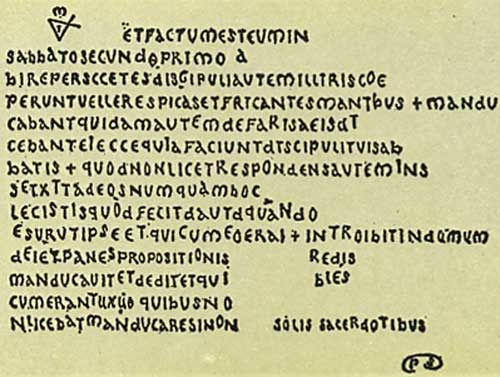 ETFACTUMESTEUMIN
SABBATOSECUNDOPRIMO A
BIREPERSCCETESDISGIPULIAUTEMILLITRISCOE
PERUNTUELLERESPICASETFRICANTESMANTBUS + MANDU
CABANTQUIDAMAUTEMDEFARISAEISDT
CEBANTEIECCEQUIAFACIUNTDTSCIPULITUISAB
BATIS + QUODNONLICETRESPONDENSAUTEMINS
SETXTTADEOSNUMQUAMBOC
LECISTISQUODFECITDAUTDQUANDO
ESURUTIPSEETQUICUMEOERAI + INTROIBITINDOMUM
DEIETPANESPROPOSITIONIS REDIS
MANDUCAUITETDEDITETQUI BLES
CUMERANTUXUO QUIBUSNO
NLICEBATMANDUCARESINON SOLIS SACERDOTIBUS
PS